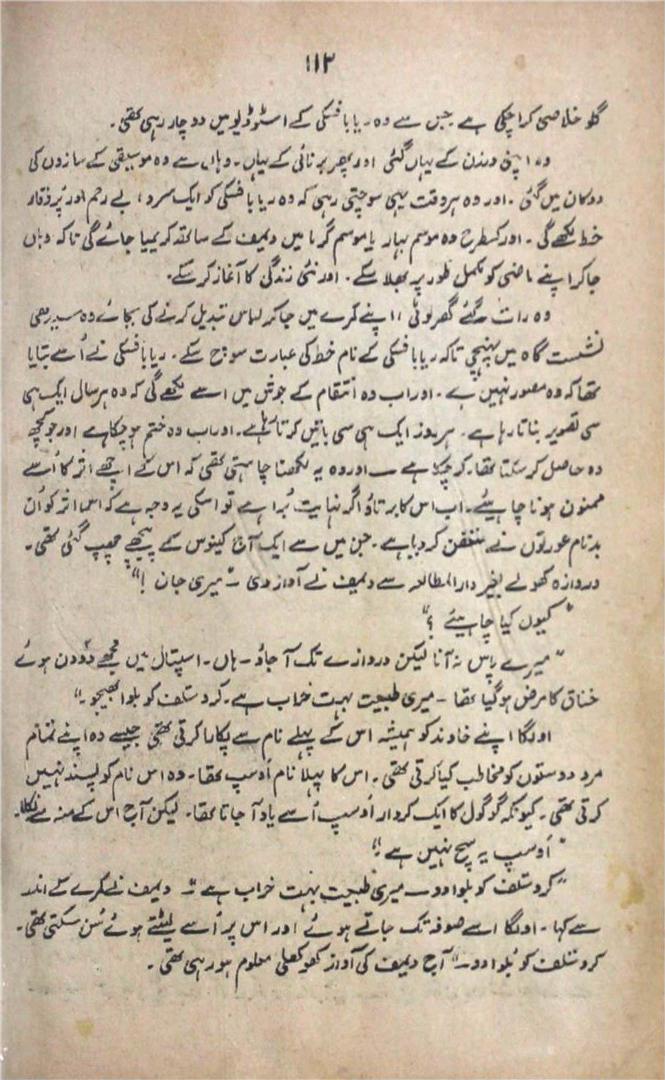 ۱۱۲
گلو خلاصی کرا چکی ہے جس سے وہ ریابافسکی کے اسٹوڈیو میں دو چار رہی تھی۔
وہ اپنی درزن کے یہاں گئی اور پھر برنائی کے یہاں۔ وہاں سے وہ موسیقی کے سازوں کی
دوکان میں گئی۔ اور وہ ہر وقت یہی سوچتی رہی کہ وہ ریابافسکی کو ایک سرد، بے رحم اور پُر وقار
خط لکھے گی۔ اور کسطرح وہ موسم بہار یا موسم گرما میں دیمف کے ساتھ کریمیا جائے گی تاکہ وہاں
جاکر اپنے ماضی کو مکمل طور پر بھلا سکے۔ اور نئی زندگی کا آغاز کر سکے۔
وہ رات گئے گھر لوٹی، اپنے کمرے میں جاکر لباس تبدیل کرنے کی بجائے وہ سیدھی
نشست گاہ میں پہنچی تاکہ ریابافسکی کے نام خط کی عبارت سوچ سکے۔ ریابافسکی نے اُسے بتایا
تھا کہ وہ مصور نہیں ہے۔ اور اب وہ انتقام کے جوش میں اسے لکھے گی کہ وہ ہر سال ایک ہی
سی تصویر بناتا رہا ہے۔ ہر روز ایک ہی سی باتیں کرتا رہا ہے۔ اور اب وہ ختم ہو چکا ہے اور جو کچھ
وہ حاصل کر سکتا تھا۔ کر چکا ہے — اور وہ یہ لکھنا چاہتی تھی کہ اس کے اچھے اثر کا اُسے
ممنون ہونا چاہیئے۔ اب اس کا برتاؤ اگر نہایت بُرا ہے تو اسکی یہ وجہ ہے کہ اس اثر کو اُن
بدنام عورتوں نے متعفن کر دیا ہے۔ جن میں سے ایک آج کینوس کے پیچھے چھپ گئی تھی۔
دروازہ کھولے بغیر دارالمطالعہ سے دیمف نے آواز دی — "میری جان!"
"کیوں کیا چاہیئے؟"
"میرے پاس نہ آنا لیکن دروازے تک آ جاؤ۔ ہاں۔ اسپتال میں مجھے دو دن ہوئے
خناق کا مرض ہو گیا تھا — میری طبیعت بہت خراب ہے۔ کروسٹلف کو بلوا بھیجو۔"
اولگا اپنے خاوند کو ہمیشہ اس کے پہلے نام سے پکارا کرتی تھی جیسے وہ اپنے تمام
مرد دوستوں کو مخاطب کیا کرتی تھی۔ اس کا پہلا نام اُوسپ تھا۔ وہ اس نام کو پسند نہیں
کرتی تھی۔ کیونکہ گوگول کا ایک کردار اُوسپ اُسے یاد آ جاتا تھا۔ لیکن آج اس کے منہ سے نکلا۔
"اُوسپ یہ سچ نہیں ہے!"
"کروسٹلف کو بلوا دو — میری طبیعت بہت خراب ہے" — دیمف نے کمرے کے اندر
سے کہا۔ اولگا اسے صوفہ تک جاتے ہوئے اور اس پر اُسے لیٹتے ہوئے سُن سکتی تھی۔
کروسٹلف کو بُلوا دو —" آج دیمف کی آواز کھوکھلی معلوم ہو رہی تھی۔